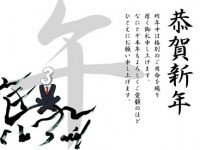 恭賀新年
昨年中は格別のご用命を賜り
厚く御礼申し上げます。
なにとぞ本年もよろしくご愛顧のほど
ひとえにお願い申し上げます。
年
3